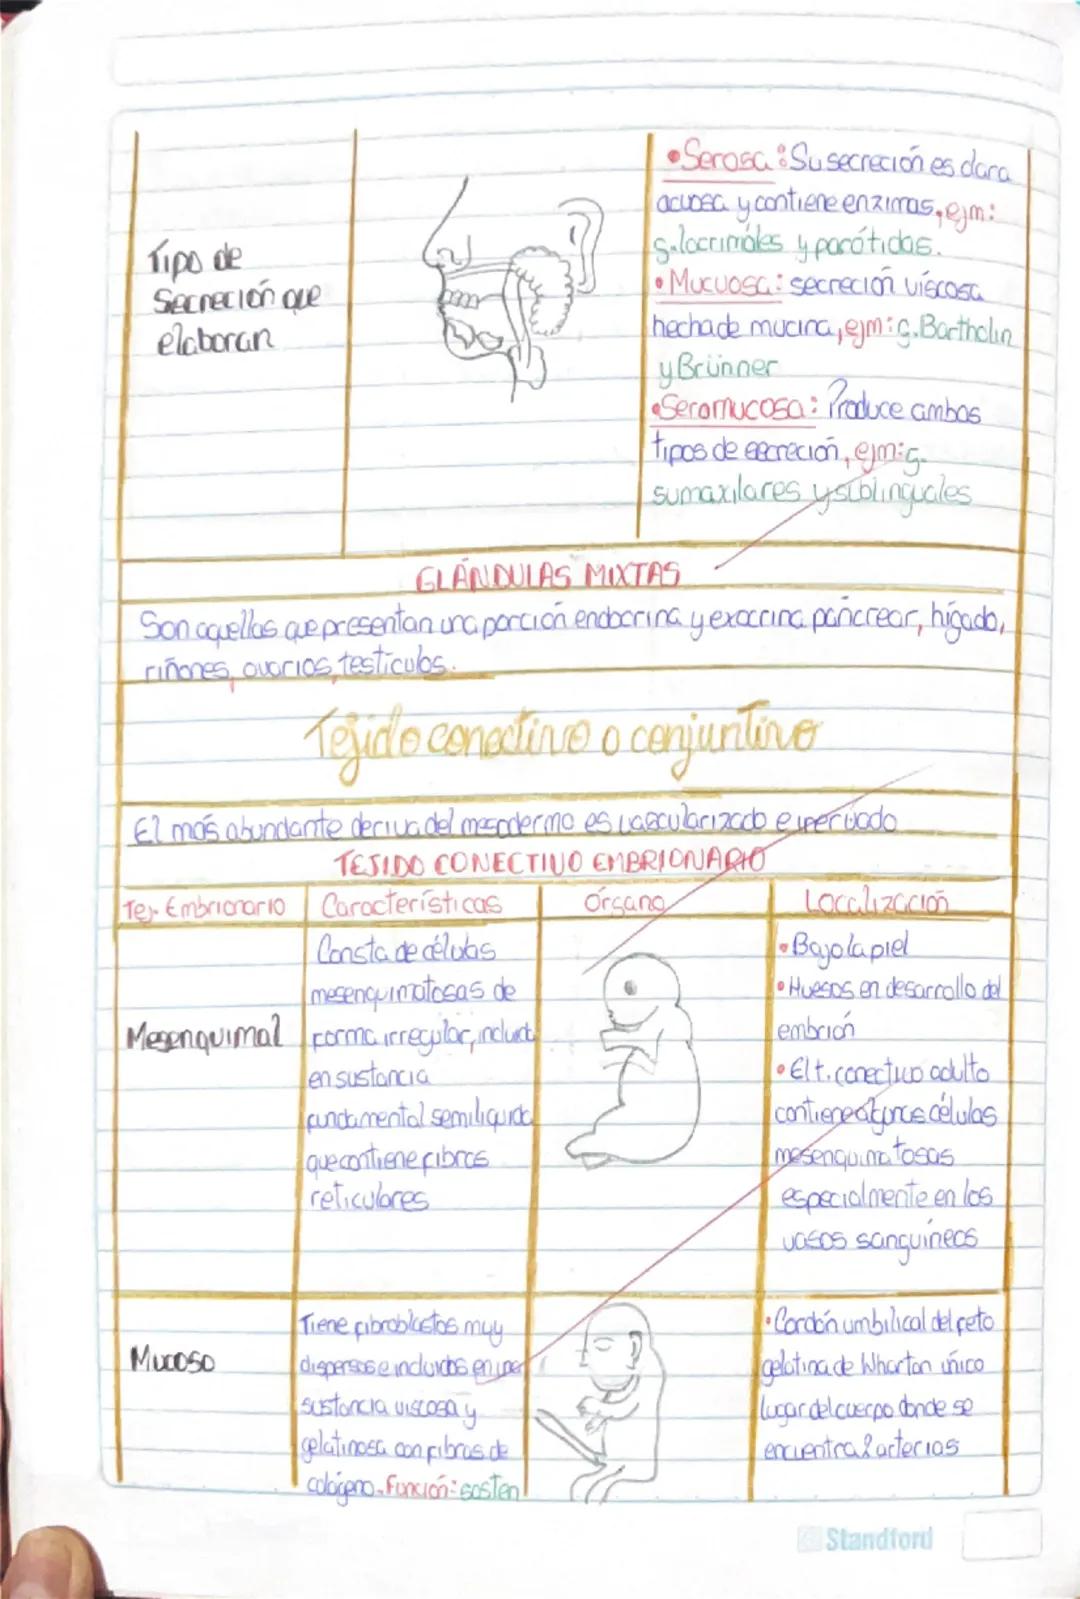 Tipo de
Secreción que
elaboran
•Serosa: Su secreción es clara
acuosa y contiene enzimas, ejm:
g. lacrimales y parótidas.
•Mucuosa: secreción víscosa
hecha de mucina, ejm: g. Bartholin
y Brünner
•Seromucosa: Produce ambos
tipos de secreción, ejm: g.
sumaxilares y sublinguales
GLÁNDULAS MIXTAS
Son aquellas que presentan una porción endocrina y exocrina páncrear, hígado,
riñones, ovarios, testículos.
Tejido conectivo o conjuntivo
El más abundante deriva del mesodermo es vascularizado e inervado
TEJIDO CONECTIVO EMBRIONARIO
Tej. Embrionario
Características
Órgano
Localización
Mesenquimal
Consta de células
mesenquimatosas de
forma irregular, incluida
en sustancia
fundamental semiliquida
que contiene fibras
reticulares
•Bajo la piel
•Huesos en desarrollo del
embrión
•El t. conectivo adulto
contiene algunas células
mesenquimatosas
especialmente en los
vasos sanguíneos
Mucoso
Tiene fibroblastos muy
dispersos e incluidos en una
sustancia viscosa y
gelatinosa con fibras de
colágeno. Función: sosten
•Cordón umbilical del feto
gelatina de Wharton único
lugar del cuerpo donde se
encuentra 2 arterias
Standford